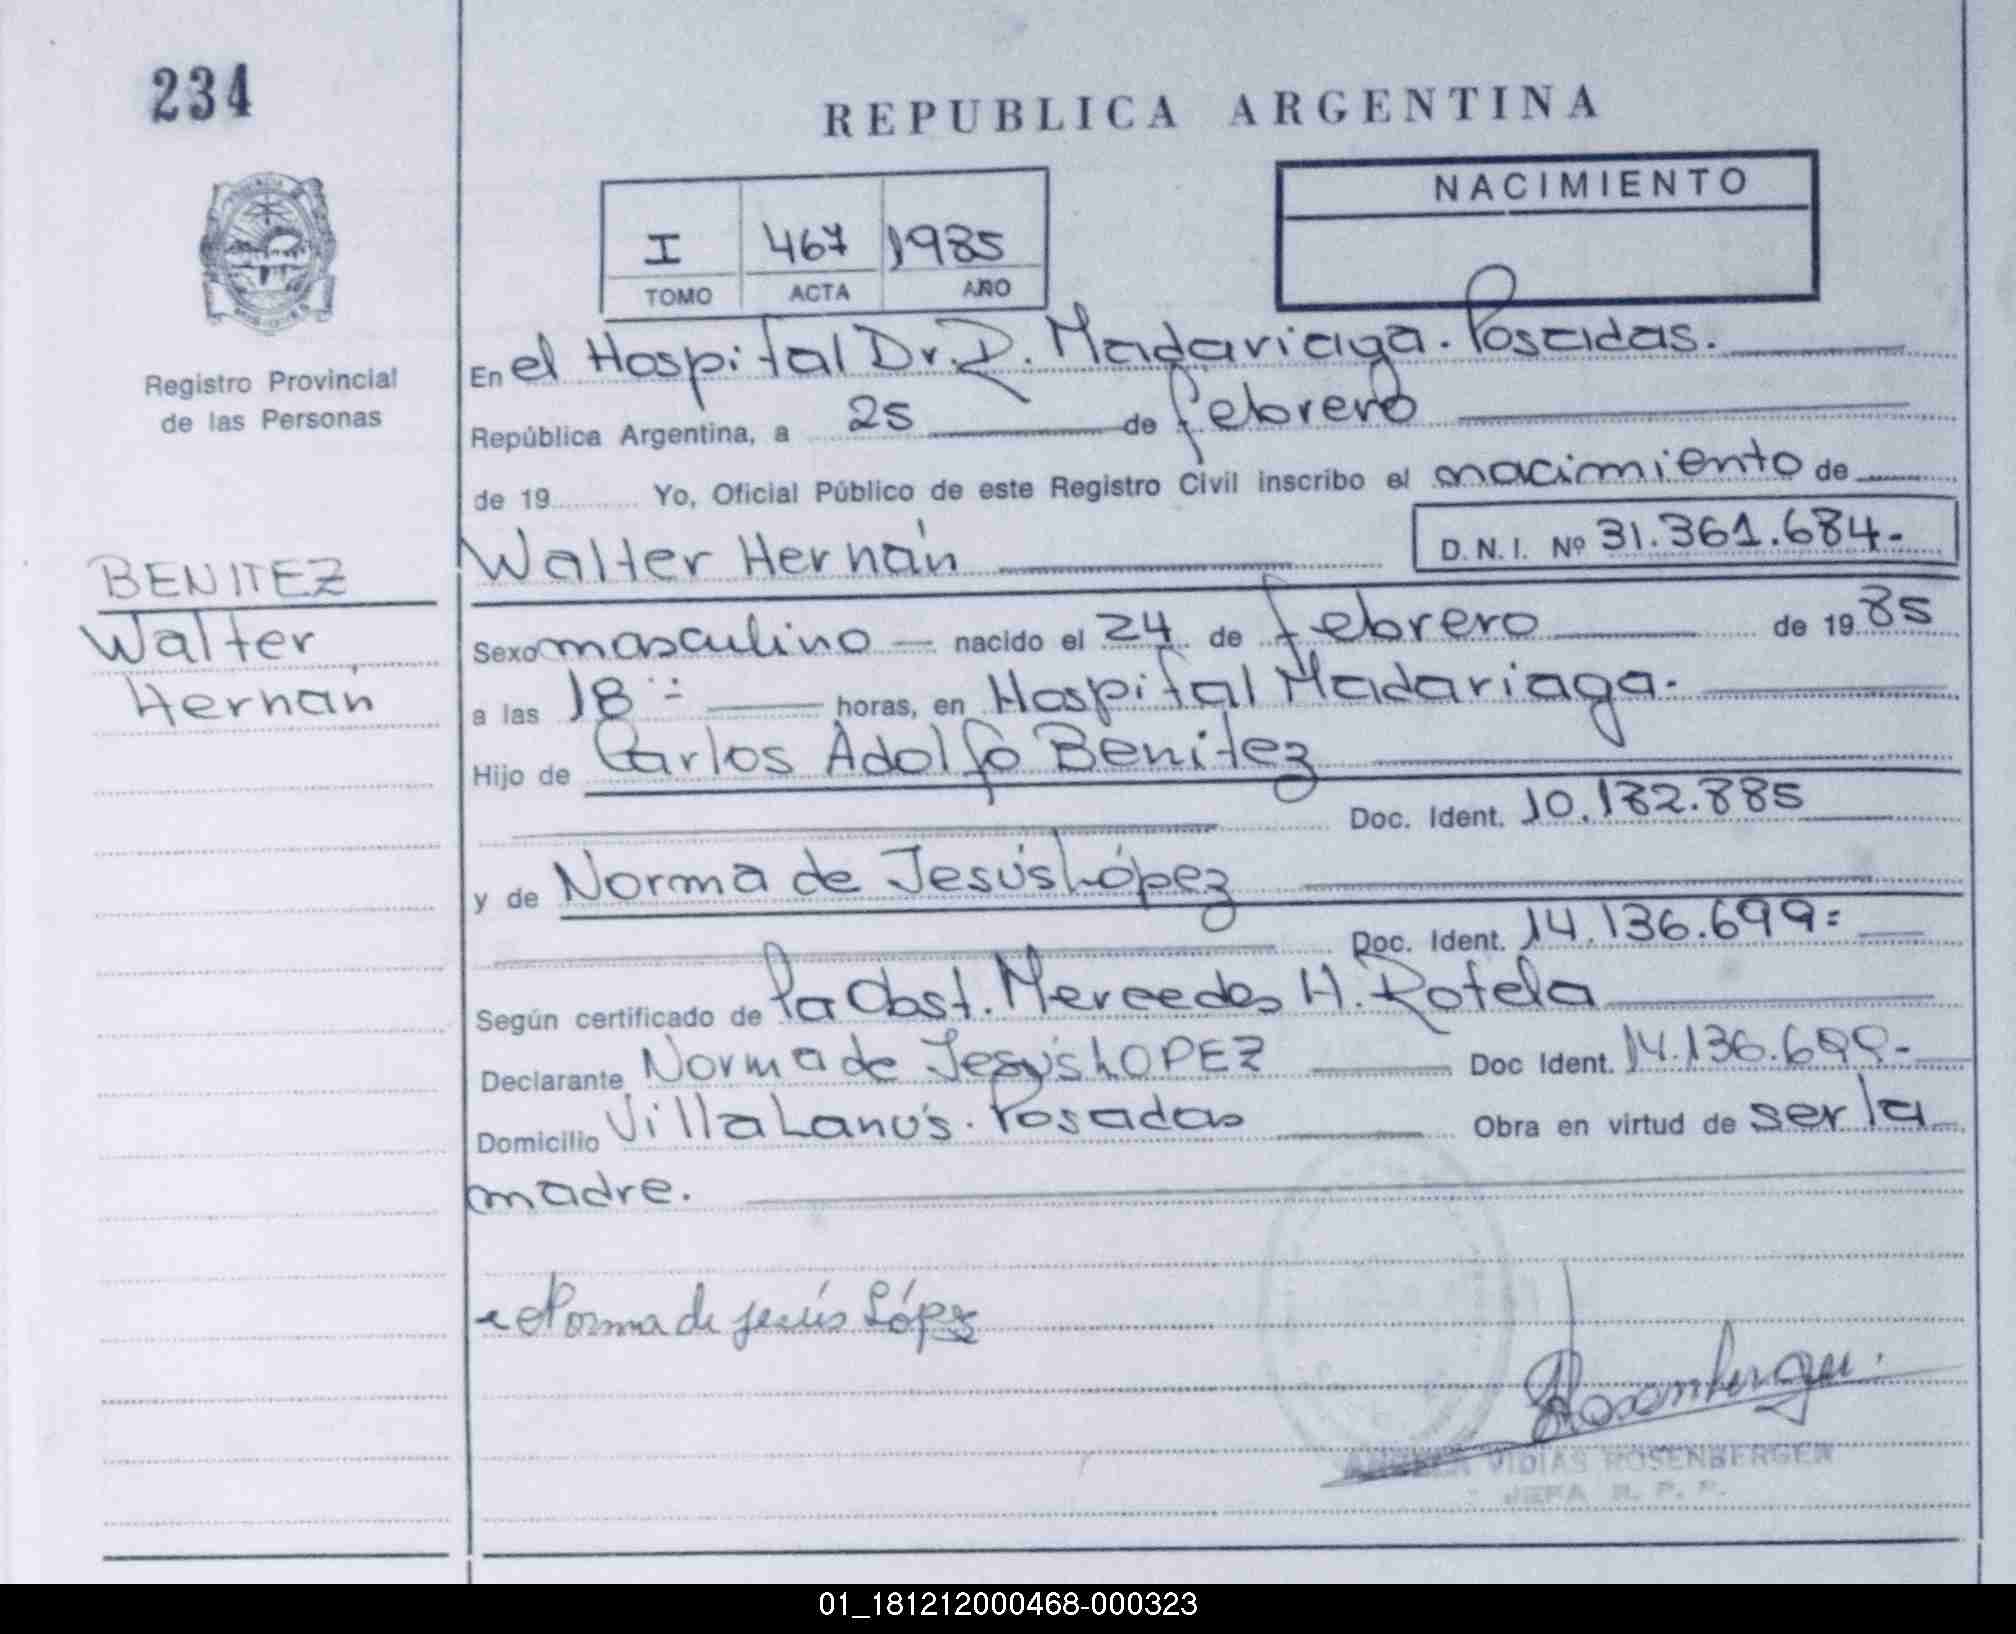 234
REPUBLICA ARGENTINA
NACIMIENTO
I 467 1985
TOMO ACTA AÑO
Registro Provincial
de las Personas
BENITEZ
Walter
Hernán
En el Hospital Dr. R. Madariaga. Posadas.
República Argentina, a 25 de febrero
de 19 Yo, Oficial Público de este Registro Civil inscribo el nacimiento de
Walter Hernán D.N.I. Nº 31.361.684.-
Sexo masculino nacido el 24 de febrero de 1985
a las 18 horas, en Hospital Madariaga.
Hijo de Carlos Adolfo Benitez
Doc. Ident. 10.182.885
y de Norma de Jesús López
Doc. Ident. 14.136.699=
Según certificado de la Obst. Mercedes H. Rotela
Declarante Norma de Jesús LOPEZ Doc Ident. 14.136.699.-
Domicilio Villa Lanús. Posadas Obra en virtud de ser la
madre.
Norma de Jesús López
Rosenberger
ANGELA VIDIAS ROSENBERGER
JEFA R. P. P.
01_181212000468-000323